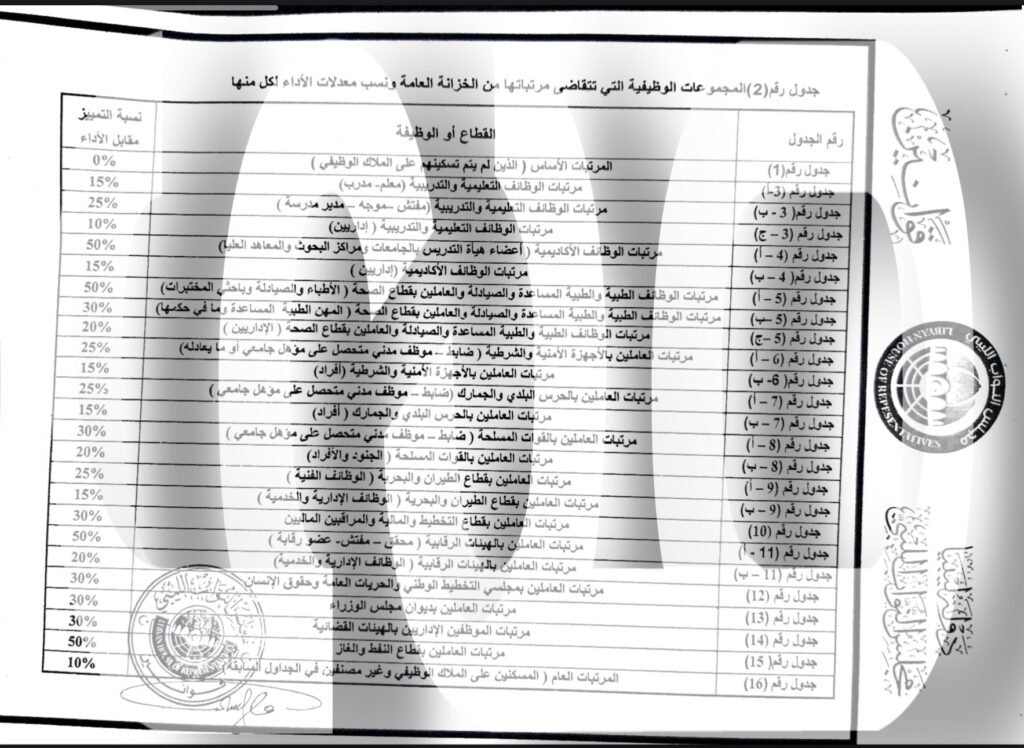 جدول رقم(2)المجموعات الوظيفية التي تتقاضى مرتباتها من الخزانة العامة ونسب معدلات الأداء لكل منها
رقم الجدول القطاع أو الوظيفة نسبة التمييز مقابل الأداء
جدول رقم(1) المرتبات الأساس ( الذين لم يتم تسكينهم على الملاك الوظيفي ) 0%
جدول رقم (3-أ) مرتبات الوظائف التعليمية والتدريبية (معلم- مدرب) 15%
جدول رقم( 3 - ب) مرتبات الوظائف التعليمية والتدريبية (مفتش – موجه – مدير مدرسة ) 25%
جدول رقم (3 – ج) مرتبات الوظائف التعليمية والتدريبية ( إداريين) 10%
جدول رقم (4 – أ) مرتبات الوظائف الأكاديمية ( أعضاء هيأة التدريس بالجامعات ومراكز البحوث والمعاهد العليا) 50%
جدول رقم ( 4 – ب) مرتبات الوظائف الأكاديمية (إداريين ) 15%
جدول رقم (5 – أ) مرتبات الوظائف الطبية والطبية المساعدة والصيادلة والعاملين بقطاع الصحة ( الأطباء والصيادلة وباحثي المختبرات) 50%
جدول رقم (5 –ب) مرتبات الوظائف الطبية والطبية المساعدة والصيادلة والعاملين بقطاع الصحة ( المهن الطبية المساعدة وما في حكمها) 30%
جدول رقم (5 –ج) مرتبات الوظائف الطبية والطبية المساعدة والصيادلة والعاملين بقطاع الصحة ( الإداريين ) 20%
جدول رقم (6 – أ) مرتبات العاملين بالأجهزة الأمنية والشرطية ( ضابط – موظف مدني متحصل على مؤهل جامعي أو ما يعادله) 25%
جدول رقم (6- ب) مرتبات العاملين بالأجهزة الأمنية والشرطية (أفراد) 15%
جدول رقم (7 – أ) مرتبات العاملين بالحرس البلدي والجمارك (ضابط – موظف مدني متحصل على مؤهل جامعي ) 25%
جدول رقم (7 – ب) مرتبات العاملين بالحرس البلدي والجمارك ( أفراد) 15%
جدول رقم (8 – أ) مرتبات العاملين بالقوات المسلحة ( ضابط – موظف مدني متحصل على مؤهل جامعي ) 30%
جدول رقم (8 – ب) مرتبات العاملين بالقوات المسلحة ( الجنود والأفراد) 20%
جدول رقم (9 – أ) مرتبات العاملين بقطاع الطيران والبحرية ( الوظائف الفنية ) 25%
جدول رقم (9 – ب) مرتبات العاملين بقطاع الطيران والبحرية ( الوظائف الإدارية والخدمية ) 15%
جدول رقم (10) مرتبات العاملين بقطاع التخطيط والمالية والمراقبين الماليين 30%
جدول رقم (11 - أ) مرتبات العاملين بالهيئات الرقابية ( محقق – مفتش- عضو رقابة ) 50%
جدول رقم (11 – ب) مرتبات العاملين بالهيئات الرقابية ( الوظائف الإدارية والخدمية) 20%
جدول رقم (12) مرتبات العاملين بمجلسي التخطيط الوطني والحريات العامة وحقوق الإنسان 30%
جدول رقم (13) مرتبات العاملين بديوان مجلس الوزراء 30%
جدول رقم (14) مرتبات الموظفين الإداريين بالهيئات القضائية 30%
جدول رقم( 15) مرتبات العاملين بقطاع النفط والغاز 50%
جدول رقم (16) المرتبات العام ( المسكنين على الملاك الوظيفي وغير مصنفين في الجداول السابقة) 10%
مجلس النواب الليبي
LIBYAN HOUSE OF REPRESENTATIVES